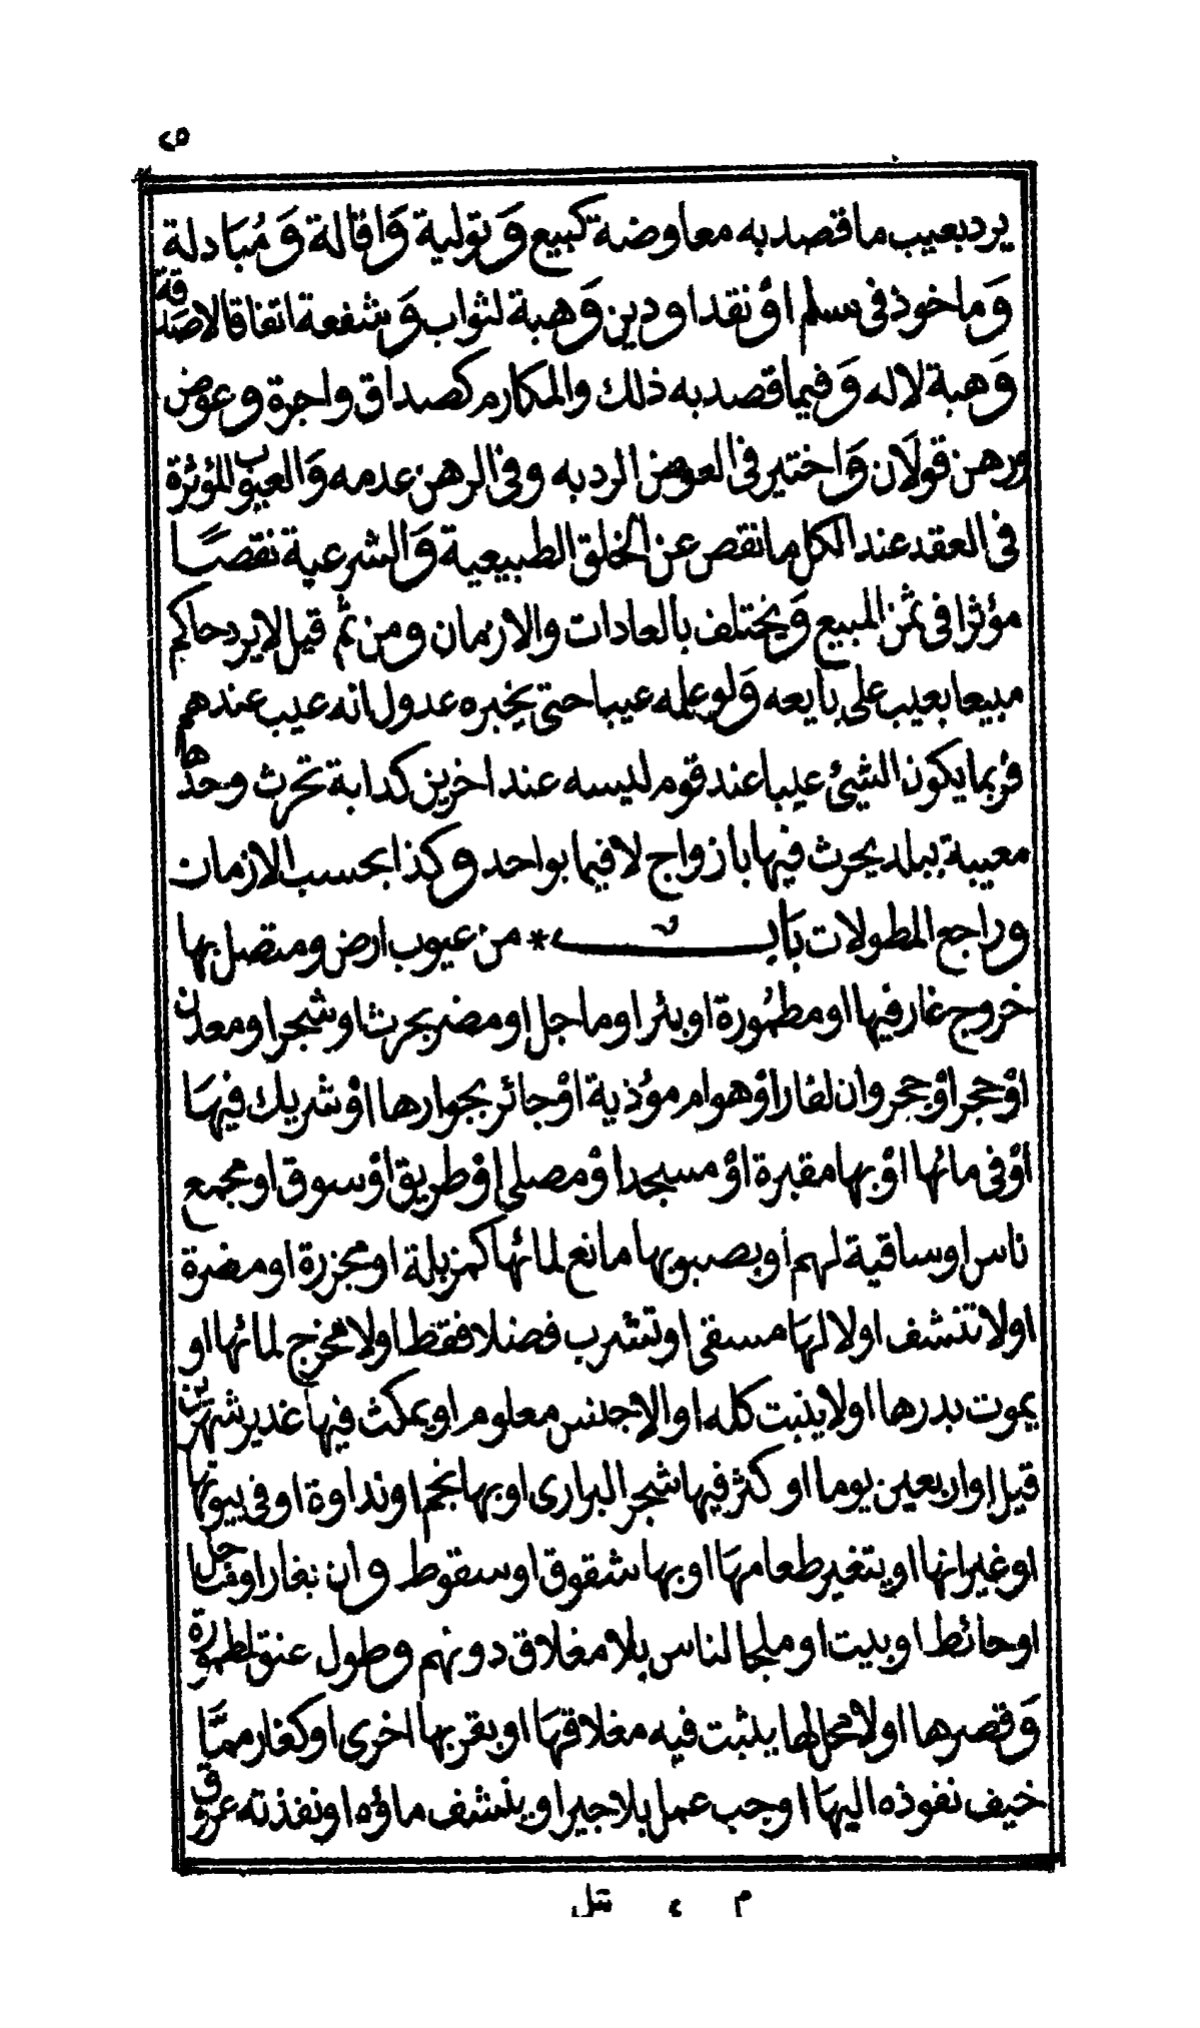 ٢٥
يرد بعيب ما قصد به معاوضة كبيع وَ تولية وَ اقالة وَ مُبَادلة
وَ ماخوذ فى سلم اوْ نقد او دين وَ هبة لثواب وَ شفعة اتفاقا لا صدقة
وَ هبة لا له وَ فيما قصد به ذلك والمكارم كصداق واجرة وعوض
ورهن قولان وَ اختير فى العوض الرد به وفى الرهن عدمه وَ العيوب المؤثرة
فى العقد عند الكل ما نقص عن الخلق الطبيعية وَ الشرعية نقصًا
مؤثرا فى ثمن المبيع وَ يختلف بالعادات والازمان ومن ثم قيل لا يرد حاكم
مبيعا بعيب على بايعه وَ لو علمه عيبا حتى يخبره عدول انه عيب عندهم
فربما يكون الشيئ عيبا عند قوم ليسه عند اخرين كدابة تحرث وحدها
معيبة ببلد يحرث فيها بازواج لا فيما بواحد وكذا بحسب الازمان
وراجع المطولات بَابٌ * من عيوب ارض ومتصل بها
خروج غار فيها او مطمُورة او بئر او ماجل او مضر بحرث او شجر او معدن
اوْ حجر اوْ جحر وان لفار اوْ هوام موُذية اوْ جائر بجوارها اوْ شريك فيهَا
اوْ فى مائها اوْ بها مقبرة اوْ مسجد اوْ مصلى اوْ طريق اوْ سوق او مجمع
ناس او ساقية لهم او بصبوبها مانع لمائها كمزبلة او مجزرة او مضرة
او لا تنشف او لا لهَا مسقى او تشرب فضلا فقط او لا مخرج لمائها او
يموت بدرها او لا ينبت كله او الا جنس معلوم او يمكث فيها غدير شهرين
قيل او اربعين يوما او كثر فيها شجر البرارى او بها نجم او نداوة او فى بيوتها
او غيرانها او يتغير طعامهَا او بها شقوق او سقوط وان بغار او
او حائط او بيت او ملجا لناس بلا مغلاق دونهم وطول عنق لمطمورة
وَ قصرها او لا محل لها يثبت فيه مغلاقهَا او بقربها اخرى او كغار ممَّا
خيف نفوذه اليهَا اوجب عمل بلا جير او ينشف ماؤه او نفذته عروق
م ٤ نيل